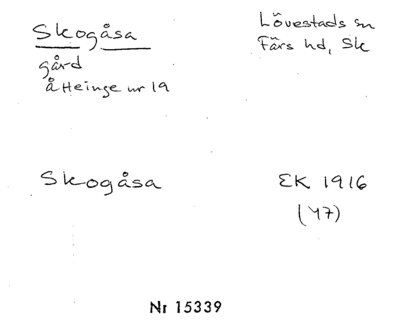 Skogåsa
gård
å Heinge nr 19
Lövestads sn
Färs hd, Sk
Skogåsa
EK 1916
(47)
Nr 15339